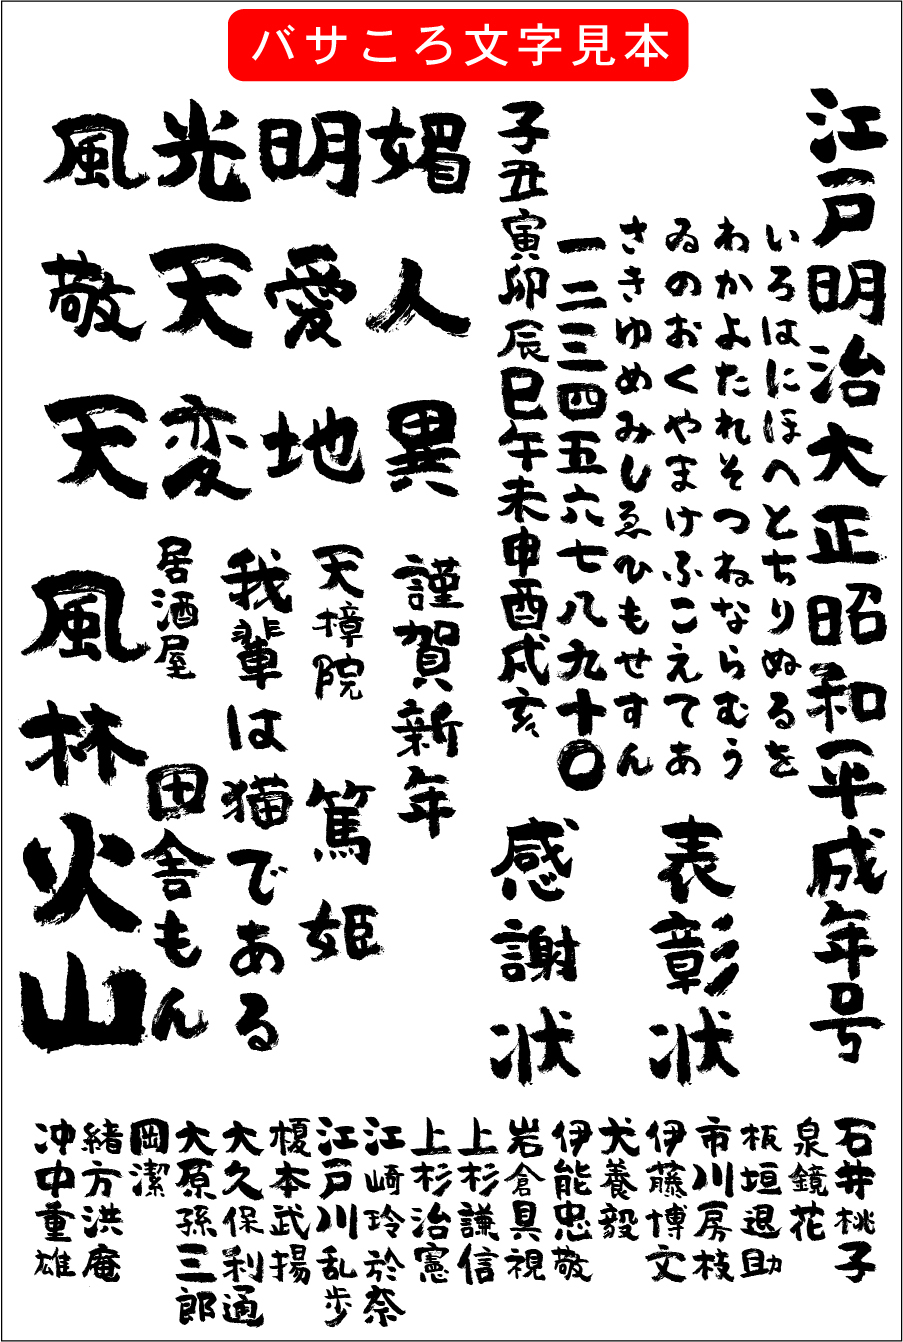 バサころ文字見本
江戸明治大正昭和平成年号
いろはにほへとちりぬるを
わかよたれそつねならむう
ゐのおくやまけふこえてあ
さきゆめみしゑひもせすん
一二三四五六七八九十〇
子丑寅卯辰巳午未申酉戌亥
表彰状
感謝状
風光明媚
敬天愛人
天変地異
謹賀新年
天樟院
篤姫
我輩は猫である
居酒屋
田舎もん
風林火山
石井桃子
泉鏡花
板垣退助
市川房枝
伊藤博文
犬養毅
伊能忠敬
岩倉具視
上杉謙信
上杉治憲
江崎玲於奈
江戸川乱歩
榎本武揚
大久保利通
大原孫三郎
岡潔
緒方洪庵
沖中重雄